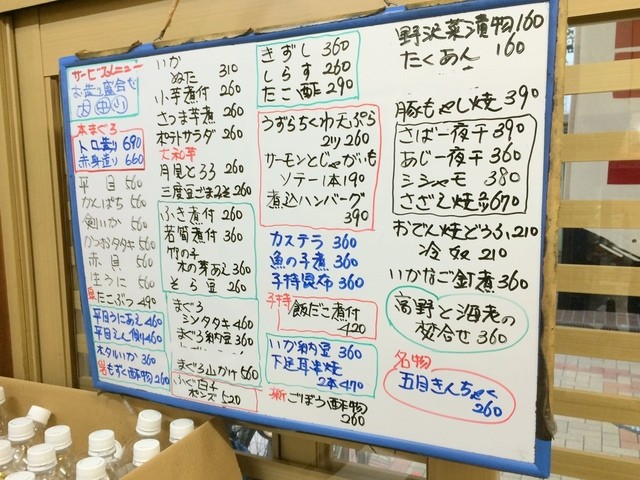 サービスメニュー
お造り盛合せ
大 中 小
本まぐろ
トロ造り 690
赤身造り 660
平目 560
かんぱち 560
剣いか 560
かつおタタキ 560
赤貝 560
生うに 560
たこぶつ 490
平目うにあえ 460
平目えんがわ 460
ホタルいか 360
岩もずく酢物 260
いか
ぬた 310
小芋煮付 260
さつま芋煮 260
ポテトサラダ 260
大和芋
月見とろろ 360
三度豆ごまみそ 260
ふき煮付 260
若筍煮付 360
竹の子
木の芽あえ 360
そら豆 260
まぐろ
ミソタタキ 460
まぐろ納豆 360
まぐろ山かけ 560
ふぐ白子
ポンズ 520
きずし 360
しらす 260
たこ酢 290
うずらちくわ天ぷら
2ツ 260
サーモンとじゃがいも
ソテー 1本190
煮込ハンバーグ
390
カステラ 360
魚の子煮 360
子持昆布 360
子持
飯だこ煮付
420
いか納豆 360
下足耳串焼
2本 470
新ごぼう酢物
260
野沢菜漬物 160
たくあん 160
豚もやし焼 390
さば一夜干 390
あじ一夜干 360
シシャモ 380
さざえ焼 670
おでん焼どうふ 210
冷奴 210
いかなご釘煮 360
高野と海老の
炊合せ 360
名物
五目きんちゃく
260